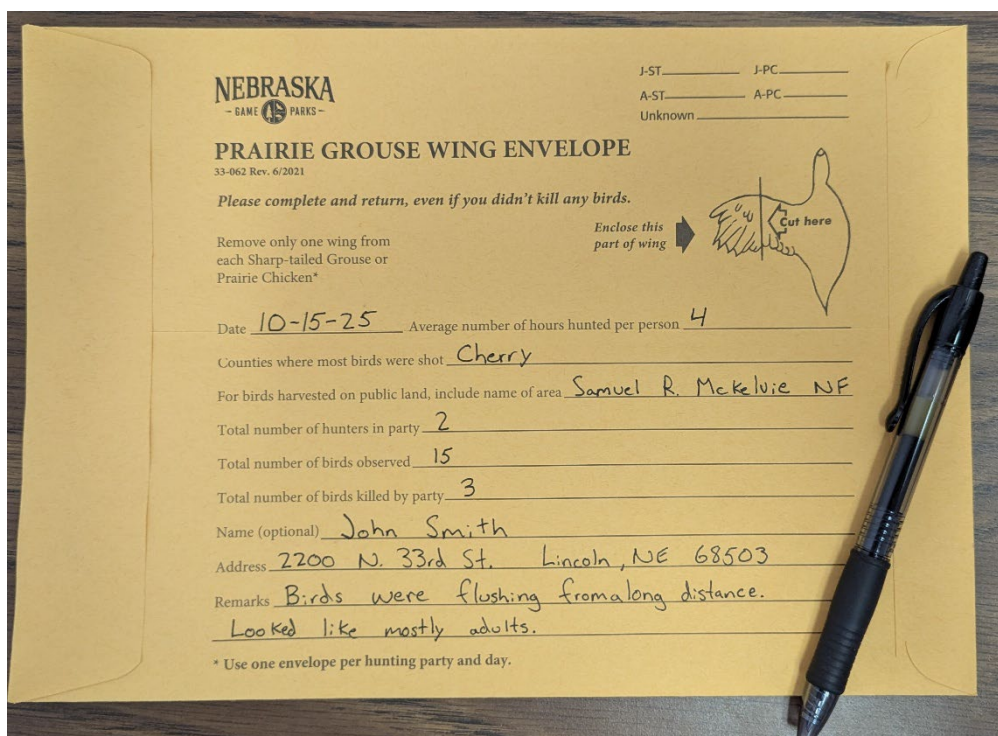 NEBRASKA
- GAME PARKS -
J-ST J-PC
A-ST A-PC
Unknown
PRAIRIE GROUSE WING ENVELOPE
33-062 Rev. 6/2021
Please complete and return, even if you didn't kill any birds.
Remove only one wing from
each Sharp-tailed Grouse or
Prairie Chicken*
Enclose this
part of wing
Cut here
Date 10-15-25 Average number of hours hunted per person 4
Counties where most birds were shot Cherry
For birds harvested on public land, include name of area Samuel R. McKelvie NF
Total number of hunters in party 2
Total number of birds observed 15
Total number of birds killed by party 3
Name (optional) John Smith
Address 2200 N. 33rd St. Lincoln, NE 68503
Remarks Birds were flushing from a long distance.
Looked like mostly adults.
* Use one envelope per hunting party and day.